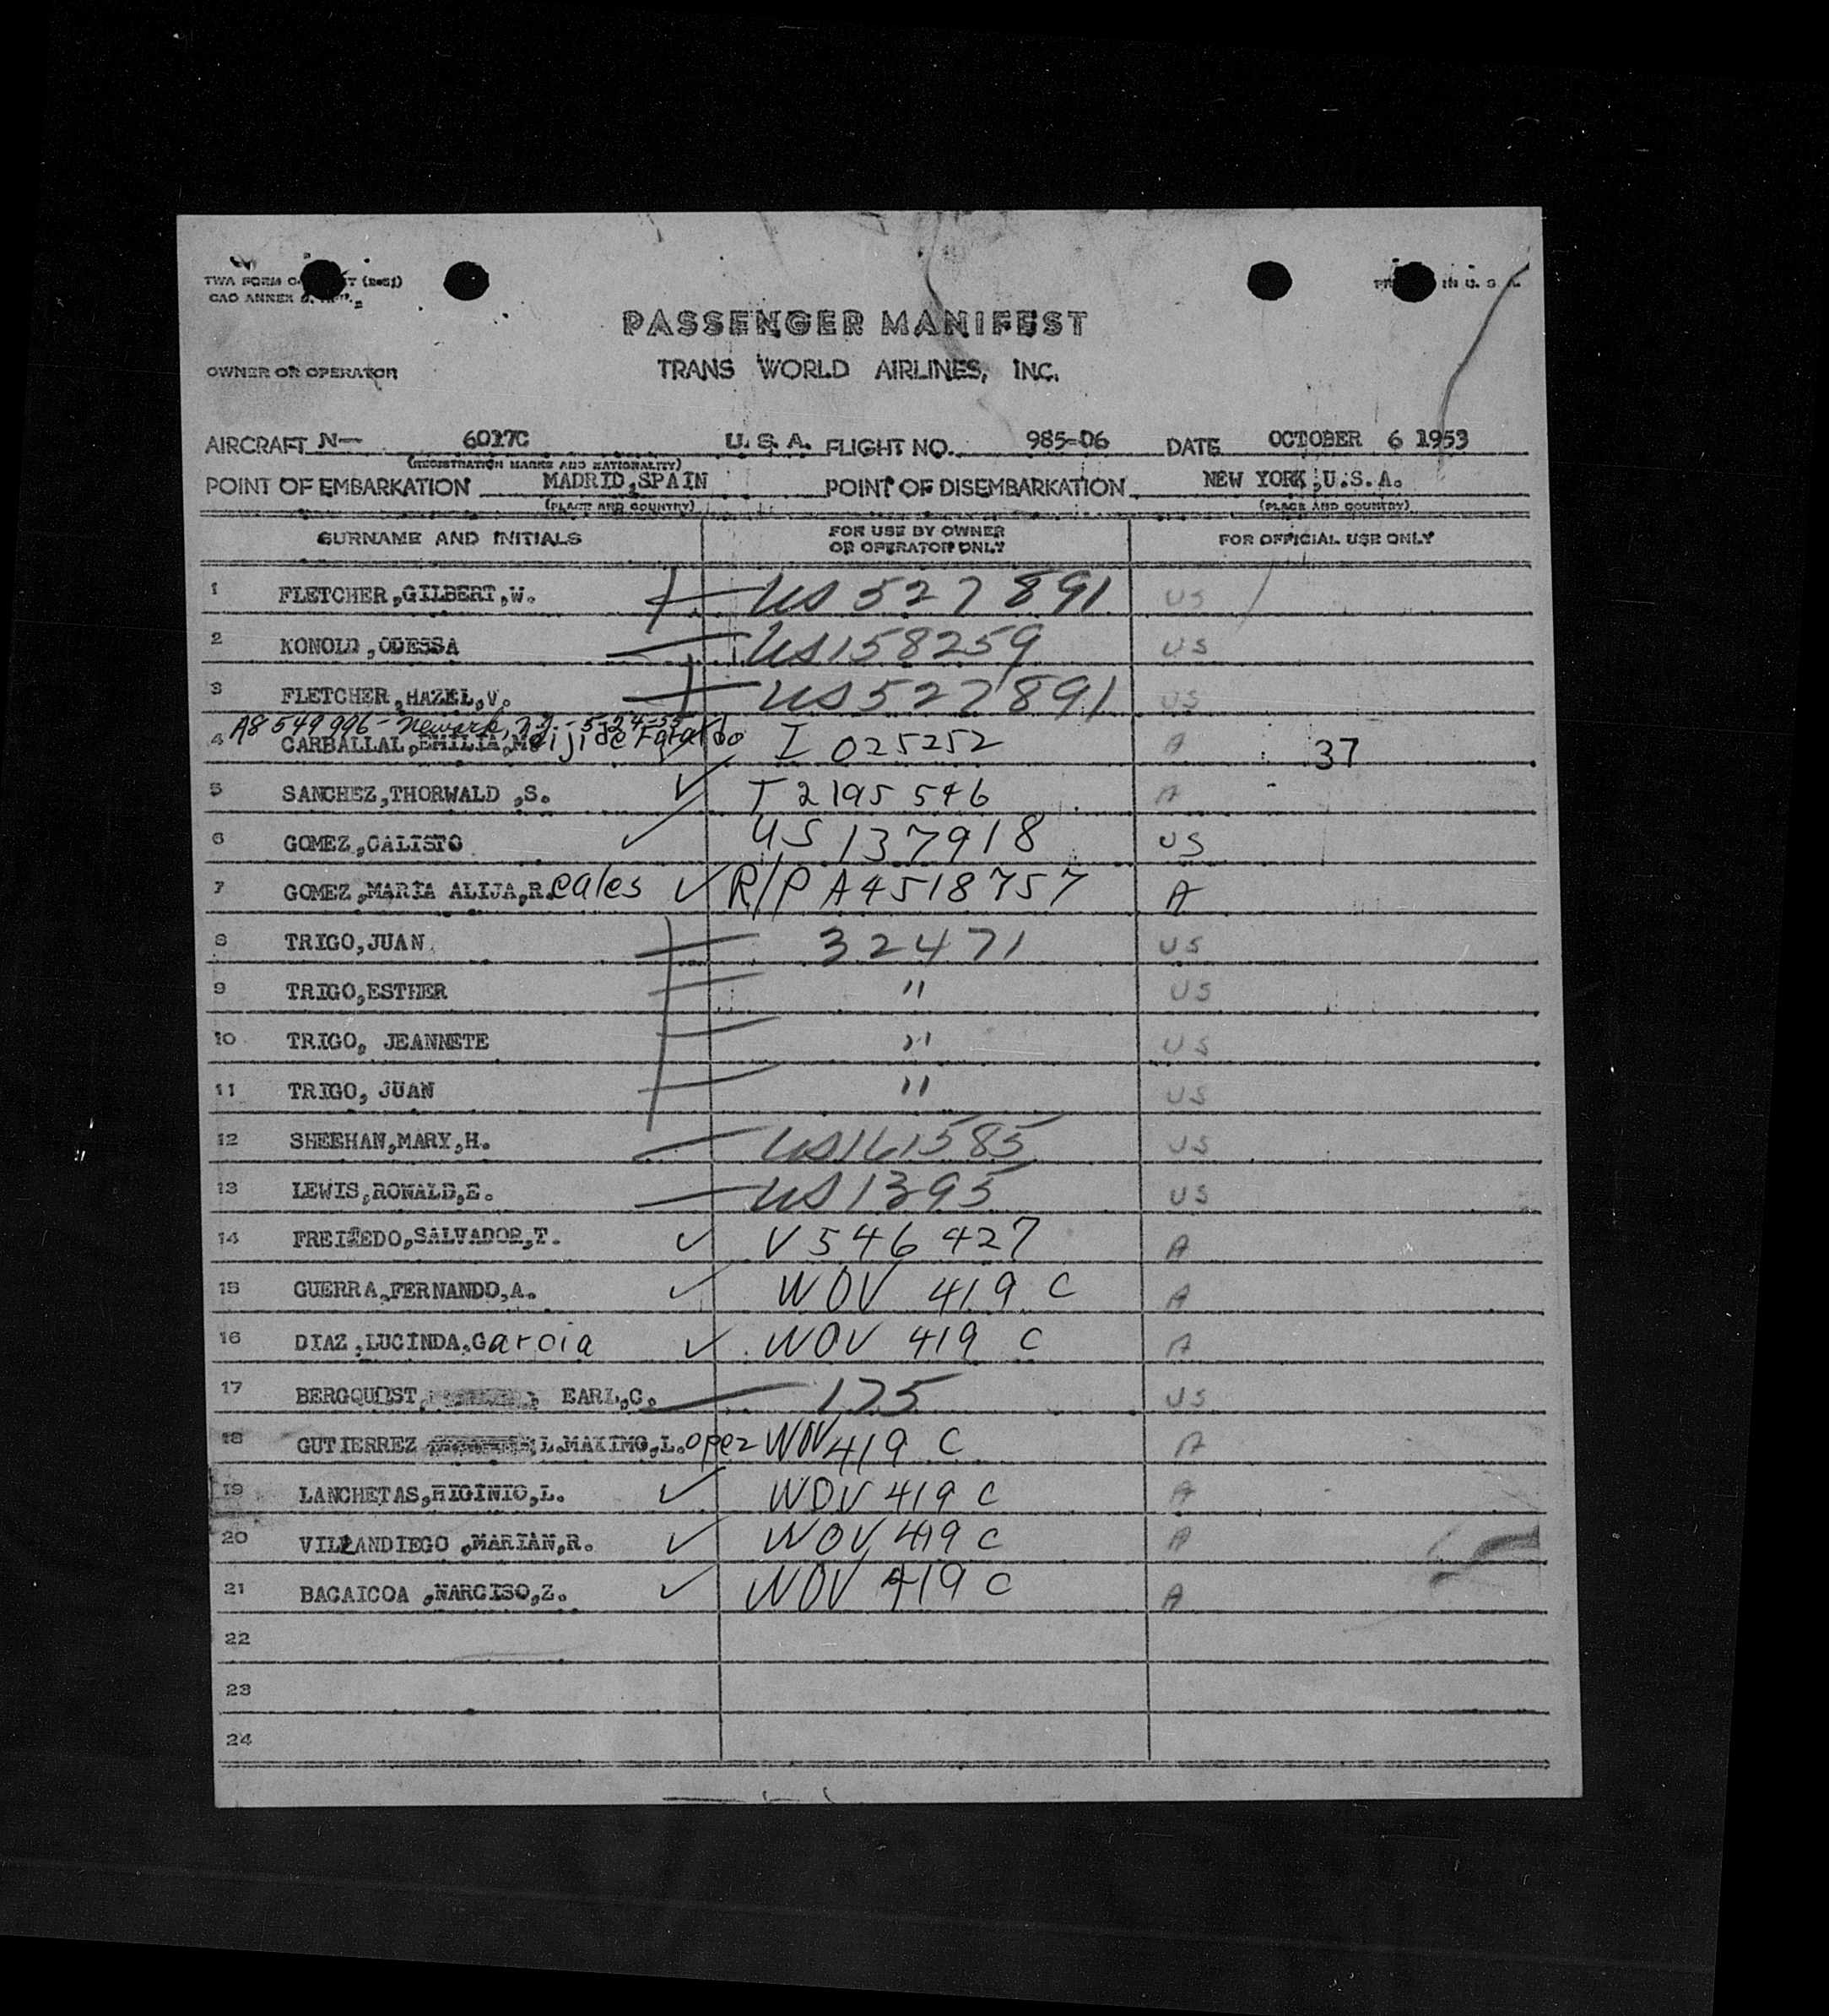 TWA FORM (2-51)
CAO ANNEX
IN U. S. A.
PASSENGER MANIFEST
OWNER OR OPERATOR TRANS WORLD AIRLINES, INC.
AIRCRAFT N— 6017C U. S. A. FLIGHT NO. 985-06 DATE OCTOBER 6 1953
(REGISTRATION MARKS AND NATIONALITY)
POINT OF EMBARKATION MADRID,SPAIN POINT OF DISEMBARKATION NEW YORK,U.S.A.
(PLACE AND COUNTRY) (PLACE AND COUNTRY)
SURNAME AND INITIALS FOR USE BY OWNER OR OPERATOR ONLY FOR OFFICIAL USE ONLY
1 FLETCHER,GILBERT,W. US 527891 US
2 KONOLD,ODESSA US158259 US
3 FLETCHER,HAZEL,V. US527891 US
A8 549 996 - Newark, N.J. - 5-24-55
4 CARBALLAL,EMILIA,M. de I 025252 A 37
5 SANCHEZ,THORWALD ,S. ✓ T 2195 546 A
6 GOMEZ,CALISTO ✓ US 137918 US
7 GOMEZ,MARIA ALIJA,R.eales ✓ R/P A4518757 A
8 TRIGO,JUAN 32471 US
9 TRIGO,ESTHER " US
10 TRIGO, JEANNETE " US
11 TRIGO, JUAN " US
12 SHEEHAN,MARY,H. US161585 US
13 LEWIS,RONALD,E. US1395 US
14 FREIÑEDO,SALVADOR,T. ✓ V 546 427 A
15 GUERRA,FERNANDO,A. ✓ WOV 419 C A
16 DIAZ,LUCINDA,Garcia ✓ WOV 419 C A
17 BERGQUIST, EARL,C. 175 US
18 GUTIERREZ L.MAXIMO,L.opez WOV 419 C A
19 LANCHETAS,HIGINIO,L. ✓ WOV 419 C A
20 VILLANDIEGO ,MARIAN,R. ✓ WOV 419 C A
21 BACAICOA ,NARCISO,Z. ✓ WOV 419 C A
22
23
24